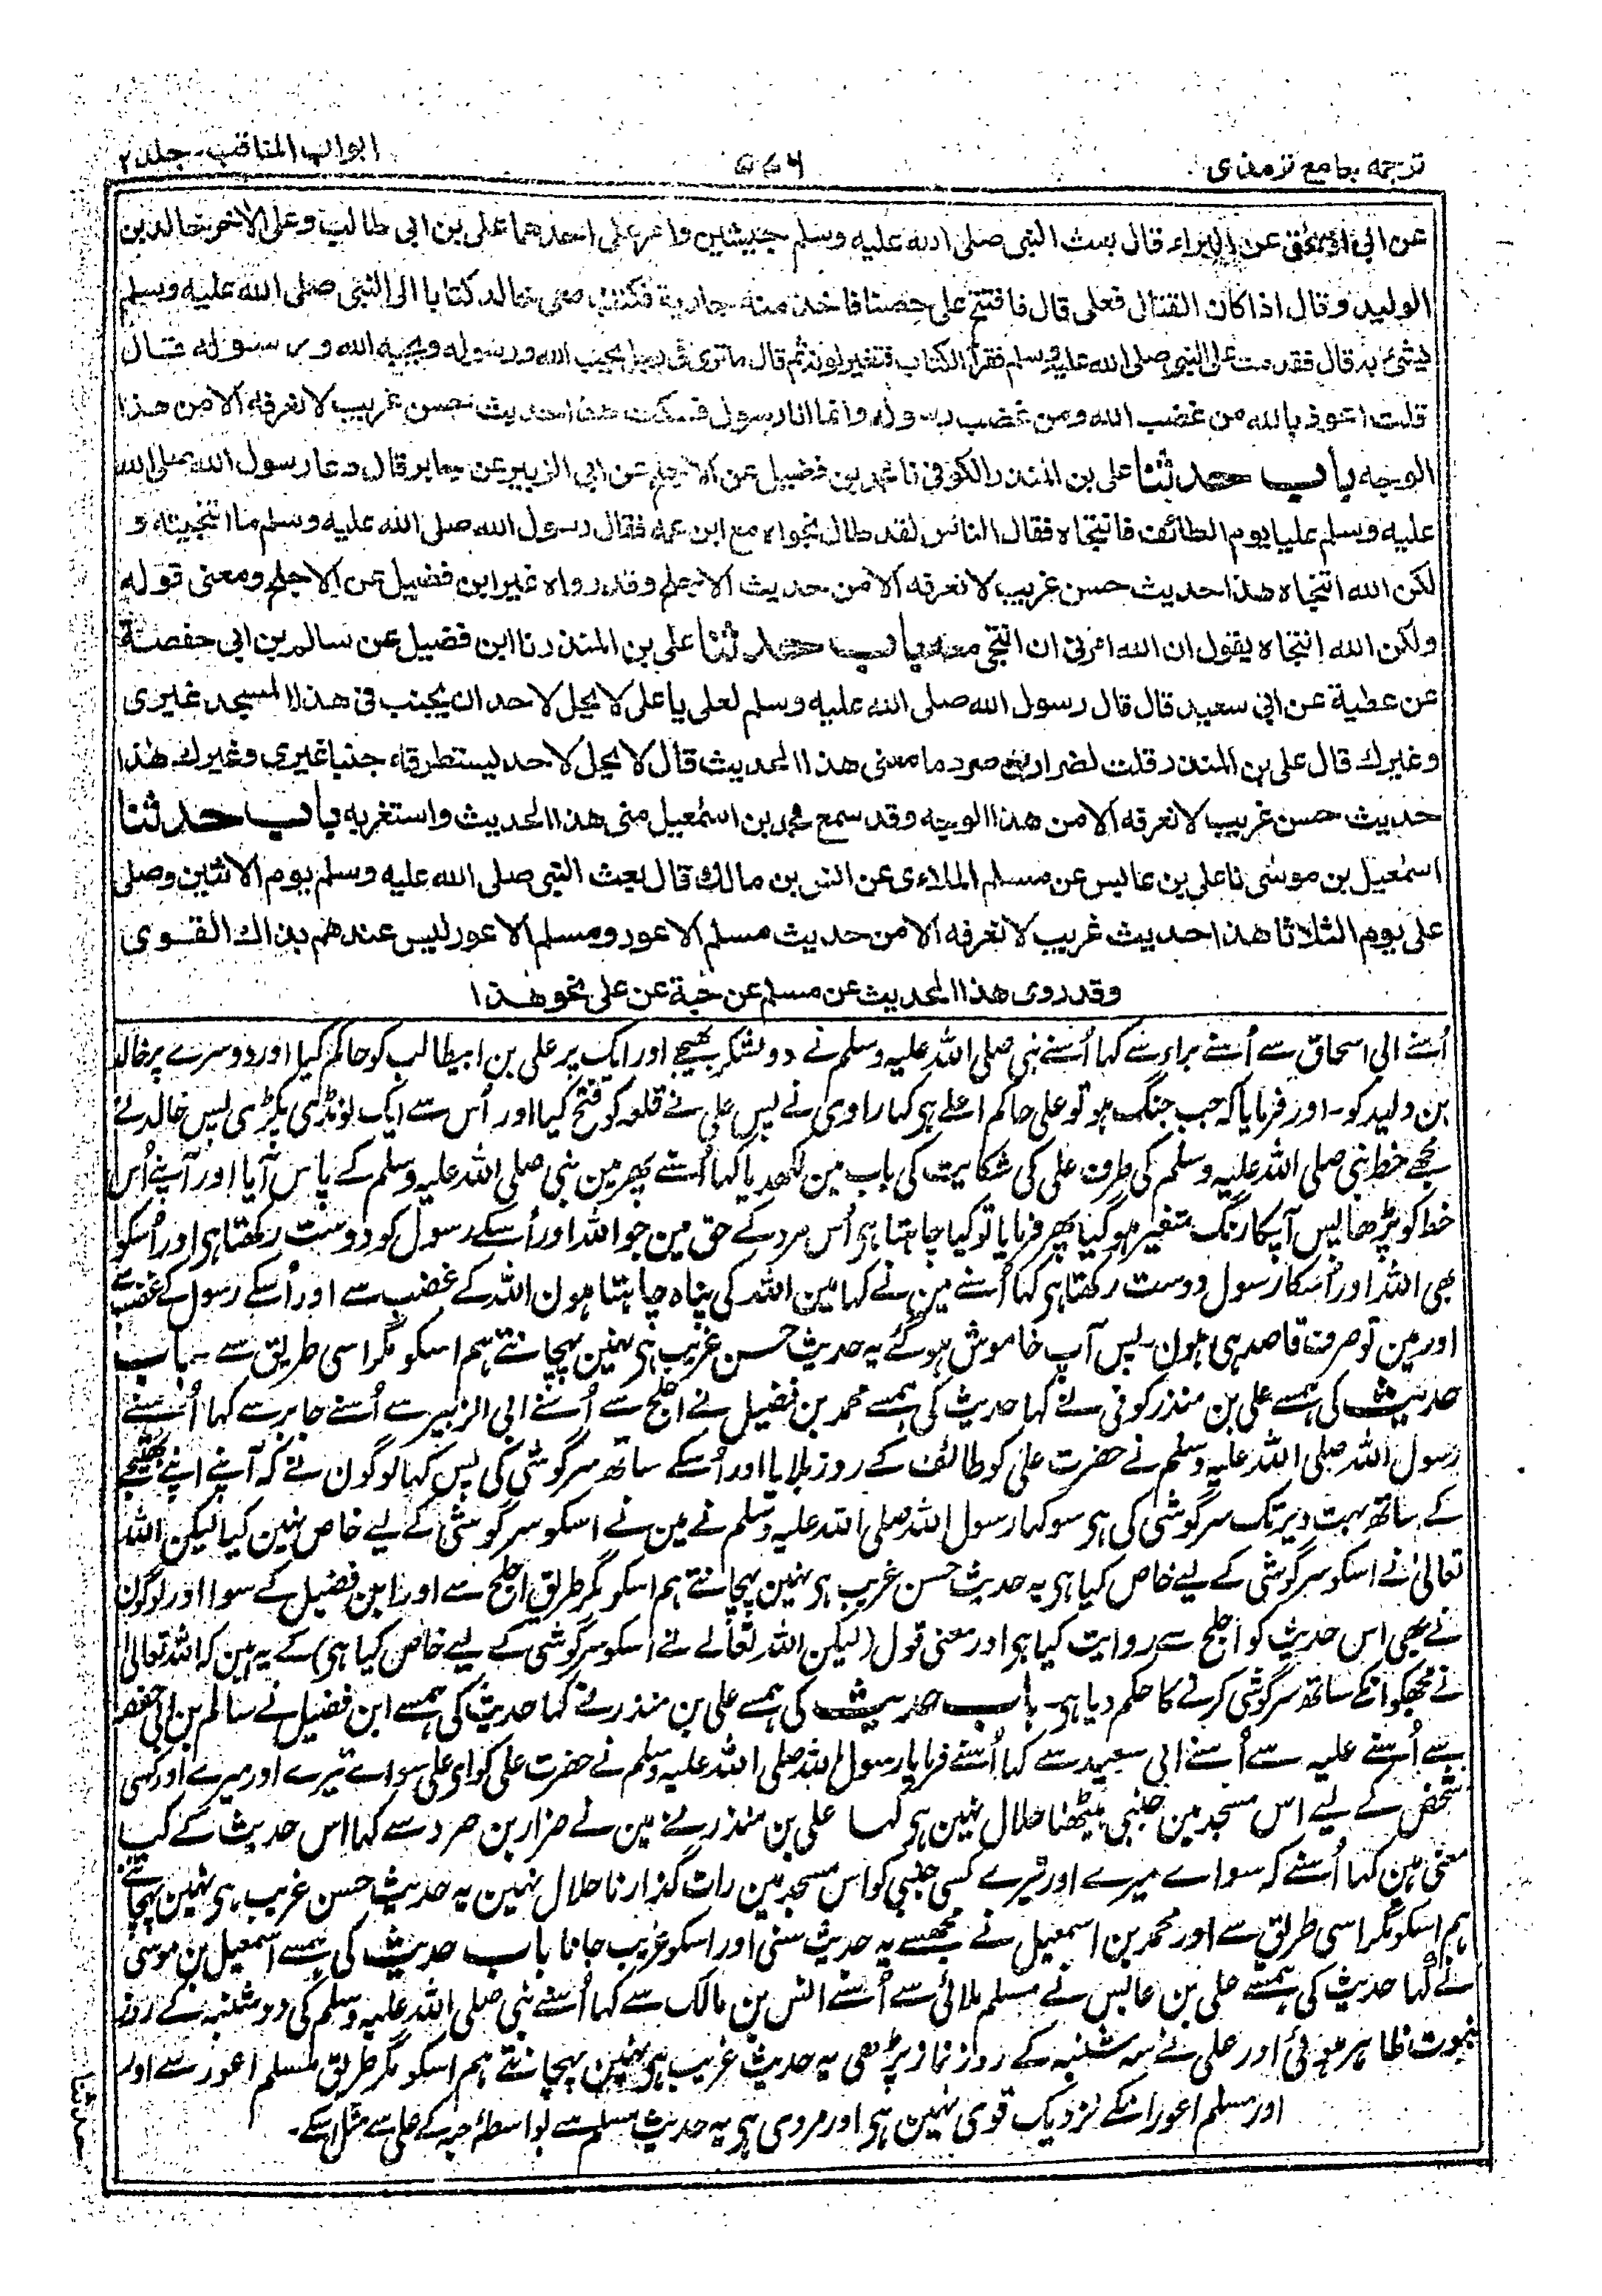 ترجمہ جامع ترمذی
۵۷۶
ابواب المناقب۔ جلد ۲
عن ابی اسحٰق عن البراء قال بعث النبی صلی اللہ علیہ وسلم جیشین وامر علی احدھما علی بن ابی طالب وعلی الاخر خالد بن
الولید وقال اذا کان القتال فعلی قال فافتتح علی حصنا فاخذ منہ جاریة فکتب معی خالد کتابا الی النبی صلی اللہ علیہ وسلم
یشئ بہ قال فقدمت علی النبی صلی اللہ علیہ وسلم فقرأ الکتاب فتغیر لونہ ثم قال ما تری فی رجل یحب اللہ ورسولہ ویحبہ اللہ ورسولہ قال
قلت اعوذ باللہ من غضب اللہ ومن غضب رسولہ وانما انا رسول فسکت ھذا حدیث حسن غریب لا نعرفہ الا من ھذا
الوجہ باب حدثنا علی بن المنذر الکوفی نا محمد بن فضیل عن الاجلح عن ابی الزبیر عن جابر قال دعا رسول اللہ صلی اللہ
علیہ وسلم علیا یوم الطائف فانتجاہ فقال الناس لقد طال نجواہ مع ابن عمہ فقال رسول اللہ صلی اللہ علیہ وسلم ما انتجیتہ و
لکن اللہ انتجاہ ھذا حدیث حسن غریب لا نعرفہ الا من حدیث الاجلح وقد رواہ غیر ابن فضیل عن الاجلح ومعنی قولہ
ولکن اللہ انتجاہ یقول ان اللہ امرنی ان انتجی معہ باب حدثنا علی بن المنذر نا ابن فضیل عن سالم بن ابی حفصة
عن عطیة عن ابی سعید قال قال رسول اللہ صلی اللہ علیہ وسلم لعلی یا علی لا یحل لاحد ان یجنب فی ھذا المسجد غیری
وغیرک قال علی بن المنذر قلت لضرار بن صرد ما معنی ھذا الحدیث قال لا یحل لاحد یستطرقہ جنبا غیری وغیرک ھذا
حدیث حسن غریب لا نعرفہ الا من ھذا الوجہ وقد سمع محمد بن اسمٰعیل منی ھذا الحدیث واستغربہ باب حدثنا
اسمٰعیل بن موسٰی نا علی بن عابس عن مسلم الملاءی عن انس بن مالک قال بعث النبی صلی اللہ علیہ وسلم یوم الاثنین وصلی
علی یوم الثلاثا ھذا حدیث غریب لا نعرفہ الا من حدیث مسلم الاعور ومسلم الاعور لیس عندھم بذاک القوی
وقد روی ھذا الحدیث عن مسلم عن حبة عن علی نحو ھذا
اُسنے ابی اسحاق سے اُسنے براء سے کہا اُسنے نبی صلی اللہ علیہ وسلم نے دو لشکر بھیجے اور ایک پر علی بن ابیطالب کو حاکم کیا اور دوسرے پر خالد
بن ولید کو۔ اور فرمایا کہ جب جنگ ہو تو علی حاکم اعلے ہی کہا راوی نے پس علی نے قلعہ کو فتح کیا اور اُس سے ایک لونڈی پکڑی پس خالد نے
مجھے خط نبی صلی اللہ علیہ وسلم کی طرف علی کی شکایت کی باب مین لکھدیا کہا اُسنے پھر مین نبی صلی اللہ علیہ وسلم کے پاس آیا اور آپنے اُس
خط کو پڑھا پس آپکا رنگ متغیر ہو گیا پھر فرمایا تو کیا چاہتا ہی اُس مرد کے حق مین جو اللہ اور اُسکے رسول کو دوست رکھتا ہی اور اُسکو
بھی اللہ اور اُسکا رسول دوست رکھتا ہی کہا اُسنے مین نے کہا مین اللہ کی پناہ چاہتا ہون اللہ کے غضب سے اور اُسکے رسول کے غضب سے
اور مین تو صرف قاصد ہی ہون۔ پس آپ خاموش ہو گئے یہ حدیث حسن غریب ہی نہین پہچانتے ہم اسکو مگر اسی طریق سے۔ باب
حدیث کی ہمسے علی بن منذر کوفی نے کہا حدیث کی ہمسے محمد بن فضیل نے اجلح سے اُسنے ابی الزبیر سے اُسنے جابر سے کہا اُسنے
رسول اللہ صلی اللہ علیہ وسلم نے حضرت علی کو طائف کے روز بلایا اور اُسکے ساتھ سرگوشی کی پس کہا لوگون نے کہ آپنے اپنے بھتیجے
کے ساتھ بہت دیر تک سرگوشی کی ہی سو کہا رسول اللہ صلی اللہ علیہ وسلم نے مین نے اسکو سرگوشی کے لیے خاص نہین کیا لیکن اللہ
تعالیٰ نے اسکو سرگوشی کے لیے خاص کیا ہی یہ حدیث حسن غریب ہی نہین پہچانتے ہم اسکو مگر طریق اجلح سے اور ابن فضیل کے سوا اور لوگون
نے بھی اس حدیث کو اجلح سے روایت کیا ہی اور معنی قول (لیکن اللہ تعالے نے اسکو سرگوشی کے لیے خاص کیا ہی) کے یہ ہین کہ اللہ تعالیٰ
نے مجھکو انکے ساتھ سرگوشی کرنے کا حکم دیا ہی۔ باب حدیث کی ہمسے علی بن منذر نے کہا حدیث کی ہمسے ابن فضیل نے سالم بن ابی حفصہ
سے اُسنے علیہ سے اُسنے ابی سعید سے کہا اُسنے فرمایا رسول اللہ صلی اللہ علیہ وسلم نے حضرت علی کو ای علی سواے تیرے اور میرے اور کسی
شخص کے لیے اس مسجد مین جنبی بیٹھنا حلال نہین ہی کہا علی بن منذر نے مین نے ضرار بن صرد سے کہا اس حدیث کے کیا
معنی ہین کہا اُسنے کہ سواے میرے اور تیرے کسی جنبی کو اس مسجد مین رات گذارنا حلال نہین یہ حدیث حسن غریب ہی نہین پہچانتے
ہم اسکو مگر اسی طریق سے اور محمد بن اسمعیل نے مجھسے یہ حدیث سنی اور اسکو غریب جانا باب حدیث کی ہمسے اسمعیل بن موسیٰ
نے کہا حدیث کی ہمسے علی بن عابس نے مسلم ملائی سے اُسنے انس بن مالک سے کہا اُسنے نبی صلی اللہ علیہ وسلم کی دو شنبہ کے روز
نبوت ظاہر ہوئی اور علی نے سہ شنبہ کے روز نماز پڑھی یہ حدیث غریب ہی نہین پہچانتے ہم اسکو مگر طریق مسلم اعور سے اور
اور مسلم اعور انکے نزدیک قوی نہین ہی اور مروی ہی یہ حدیث مسلم سے بواسطہ حبہ کے علی سے مثل اسکے۔
حدثنا